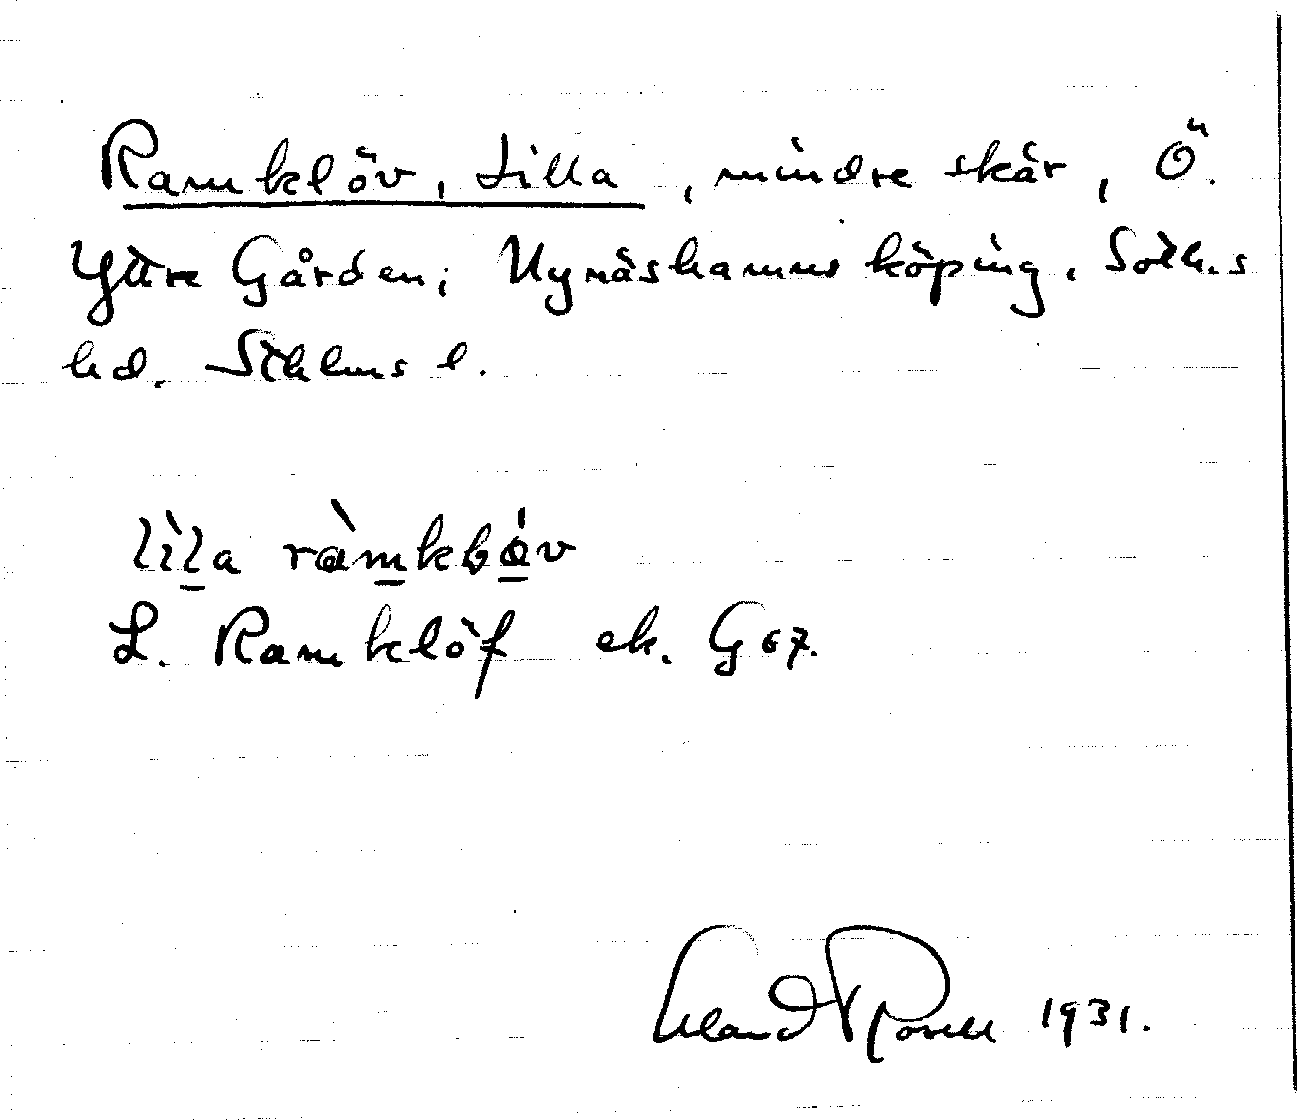 Ramklöv, Lilla, mindre skär, Ö.
Yttre Gården; Nynäshamns köping. Soth.s
hd. Sthlms l.
lìl̲a ràm̲kløv
L. Ramklöf ek. G67.
Erland Rosell 1931.